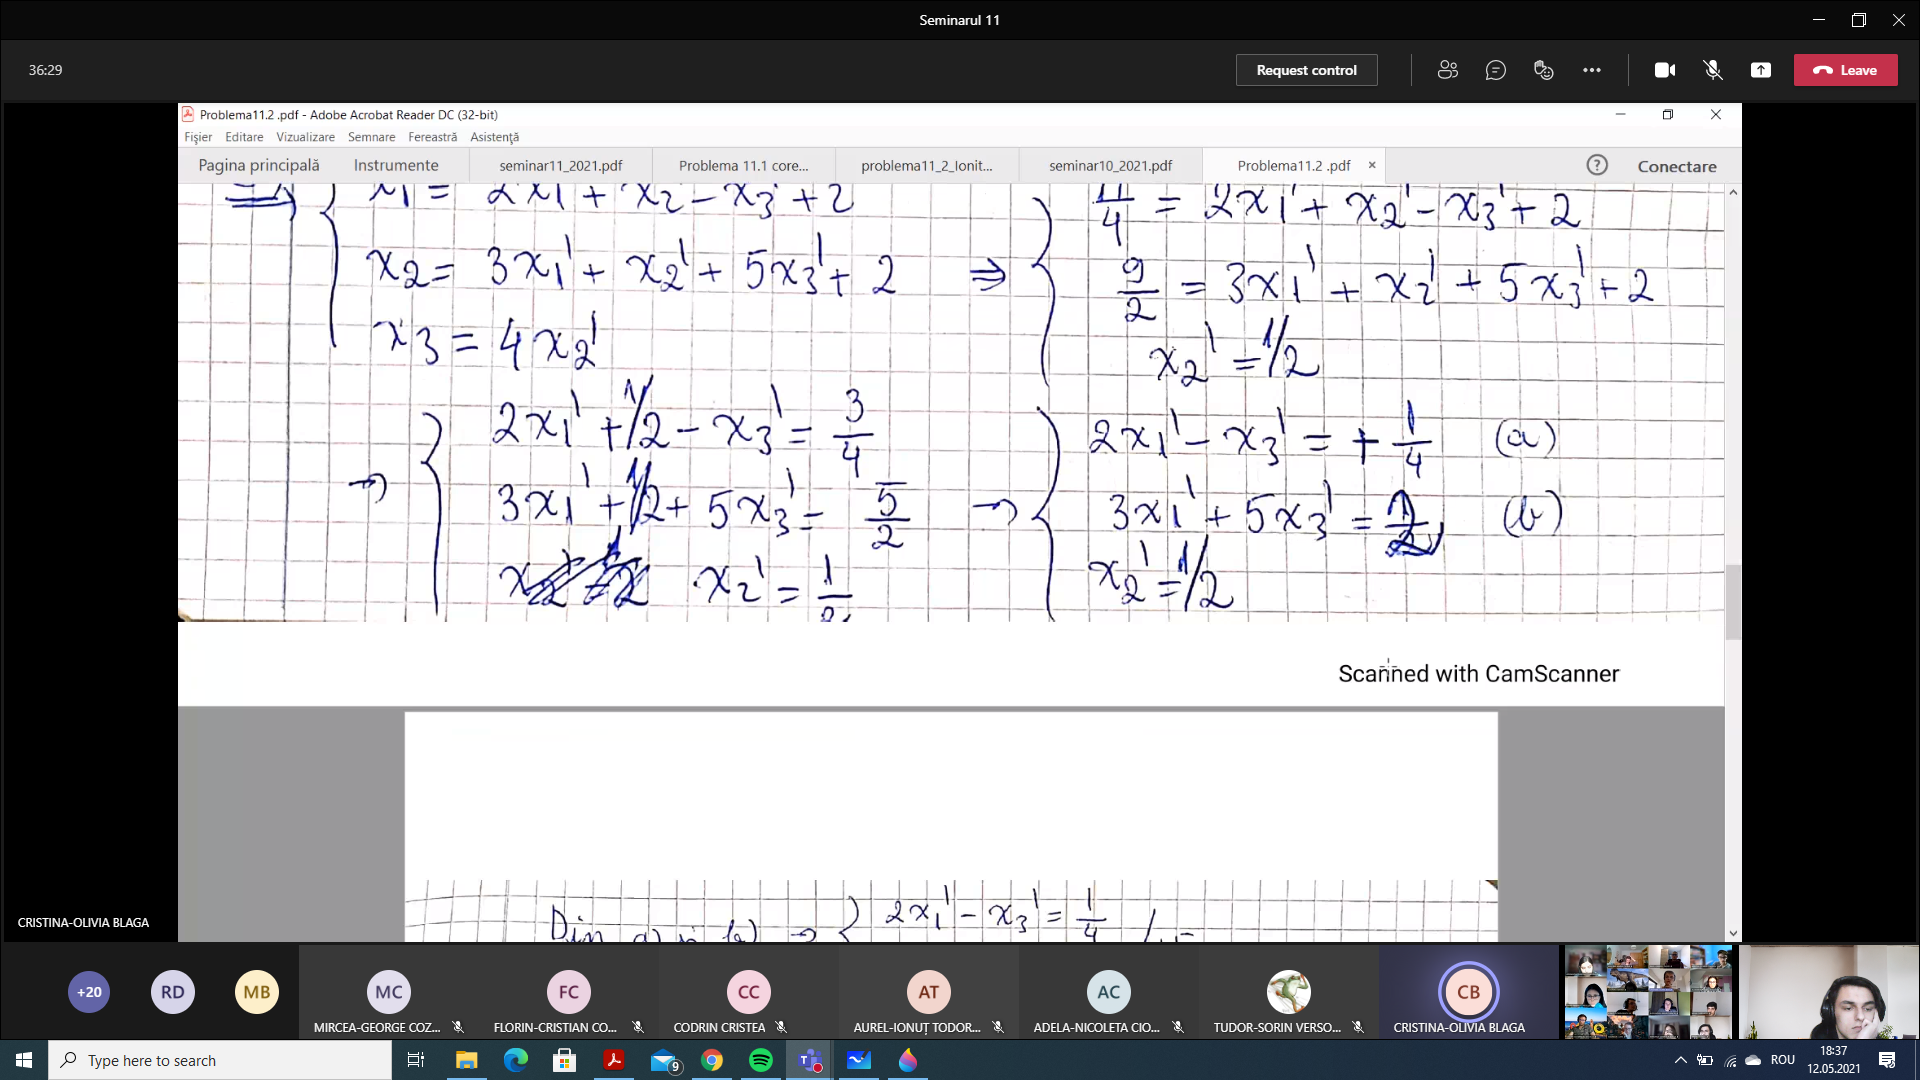 Seminarul 11
36:29
Request control
Leave
Problema11.2 .pdf - Adobe Acrobat Reader DC (32-bit)
Fișier Editare Vizualizare Semnare Fereastră Asistență
Pagina principală Instrumente seminar11_2021.pdf Problema 11.1 core... problema11_2_Ionit... seminar10_2021.pdf Problema11.2 .pdf × ? Conectare
x1 = 2x1' + x2' - x3' + 2
11/4 = 2x1' + x2' - x3' + 2
x2 = 3x1' + x2' + 5x3' + 2 ⇒
9/2 = 3x1' + x2' + 5x3' + 2
x3 = 4x2'
x2' = 1/2
2x1' + 1/2 - x3' = 3/4
2x1' - x3' = + 1/4 (a)
→ 3x1' + 1/2 + 5x3' = 5/2 →
3x1' + 5x3' = 2 (b)
x2' = 1/2
x2' = 1/2
Scanned with CamScanner
Din a) și b) → { 2x1' - x3' = 1/4
CRISTINA-OLIVIA BLAGA
+20 RD MB MC FC CC AT AC CB
MIRCEA-GEORGE COZ... FLORIN-CRISTIAN CO... CODRIN CRISTEA AUREL-IONUȚ TODOR... ADELA-NICOLETA CIO... TUDOR-SORIN VERSO... CRISTINA-OLIVIA BLAGA
Type here to search
9
ROU
18:37
12.05.2021